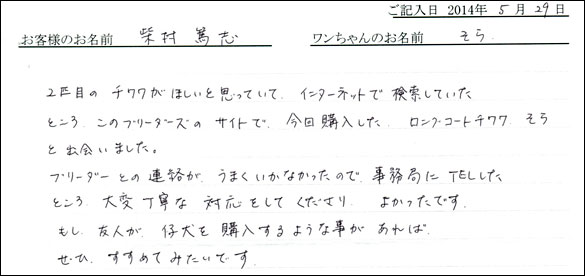 ご記入日 2014年 5 月 29日
お客様のお名前 柴村 篤志 ワンちゃんのお名前 そら
2匹目の チワワがほしいと思っていて、インターネットで 検索していた
ところ、このブリーダーズの サイトで、今回購入した、ロングコートチワワ そら
と出会いました。
ブリーダーとの連絡が、うまくいかなかったので、事務局に TELした
ところ、大変丁寧な 対応をして くださり、よかったです。
もし、友人が、仔犬を購入するような事が あれば、
ぜひ、すすめてみたいです。